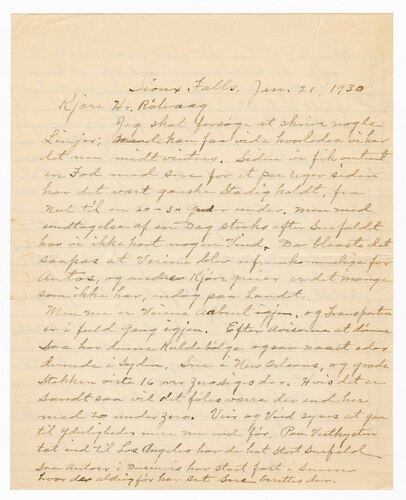 Sioux Falls, Jan. 21, 1930
Kjære Hr. Rölvaag
Jeg skal forsöge at skrive nogle
Linjer, kan faa vide hvorledes vi har
det nu midtvinters. Siden vi fik omtrent
en Fod med sne for et par uger siden
har det vært ganske Stadig koldt, fra
Nul til en 20-30 under. men med
undtagelse af en Dag straks efter Snefaldt
har vi ikke havt nogen Vind. Da blæste det
saapas at Veiene blev ufremkommelige for
Autos, og andre Kjöregreier er det mange
som ikke har, endog paa Landet.
Men nu er Veiene Aabnet igjen, og Transporten
er i fuld Gang igjen. Efter Aviserne at dömme
saa har denne Kuldebölge ogsaa naaet eder
dernede i Syden, Sne i New Orleans, og grade
Stokken viste 16 over Zero siges der. Hvis det er
Sandt saa vil det föles værre der end her
med 20 under Zero. Veir og Vind synes at gaa
til Yderligheder mer nu end för. Paa Vestkysten
tat ind til Los Angeles har de hat Stort Snefald
Saa Autoer i har staat fast i Sneen
hvor de aldrig för har set Sne berettes der.